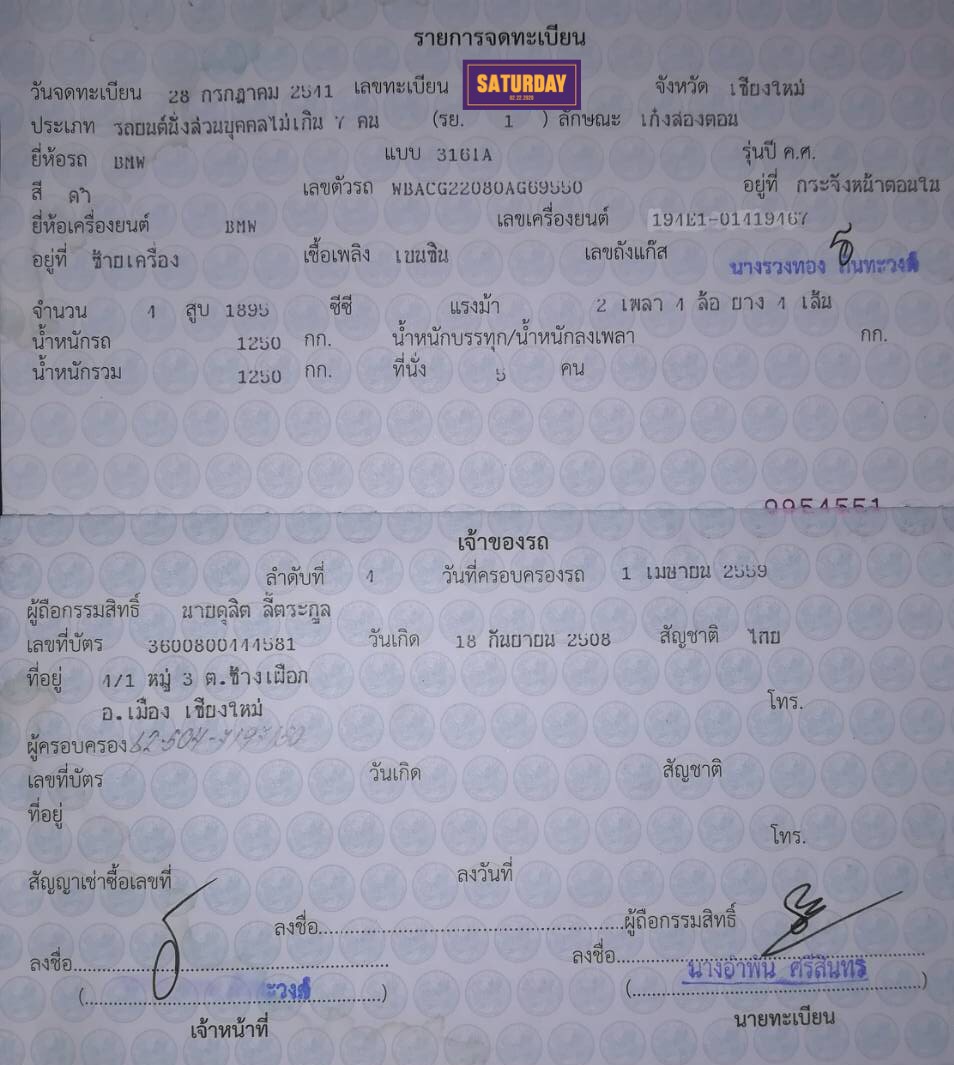 รายการจดทะเบียน
วันจดทะเบียน 28 กรกฎาคม 2541 เลขทะเบียน SATURDAY 02.22.2020 จังหวัด เชียงใหม่
ประเภท รถยนต์นั่งส่วนบุคคลไม่เกิน 7 คน (รย. 1 ) ลักษณะ เก๋งสองตอน
ยี่ห้อรถ BMW แบบ 316IA รุ่นปี ค.ศ.
สี ดำ เลขตัวรถ WBACG22080AG69550 อยู่ที่ กระจังหน้าตอนใน
ยี่ห้อเครื่องยนต์ BMW เลขเครื่องยนต์ 194E1-01419467
อยู่ที่ ซ้ายเครื่อง เชื้อเพลิง เบนซิน เลขถังแก๊ส นางรวงทอง
จำนวน 4 สูบ 1895 ซีซี แรงม้า 2 เพลา 4 ล้อ ยาง 4 เส้น
น้ำหนักรถ 1250 กก. น้ำหนักบรรทุก/น้ำหนักลงเพลา กก.
น้ำหนักรวม 1250 กก. ที่นั่ง 5 คน
9954551
เจ้าของรถ
ลำดับที่ 4 วันที่ครอบครองรถ 1 เมษายน 2559
ผู้ถือกรรมสิทธิ์ นายดุสิต ลี้ตระกูล
เลขที่บัตร 3600800444581 วันเกิด 18 กันยายน 2508 สัญชาติ ไทย
ที่อยู่ 4/1 หมู่ 3 ต.ช้างเผือก
อ.เมือง เชียงใหม่ โทร.
ผู้ครอบครอง
เลขที่บัตร วันเกิด สัญชาติ
ที่อยู่
โทร.
สัญญาเช่าซื้อเลขที่ ลงวันที่
ลงชื่อ ผู้ถือกรรมสิทธิ์
ลงชื่อ ลงชื่อ
( ะวงค์ ) ( นางอำพัน ศรีสินทร )
เจ้าหน้าที่ นายทะเบียน